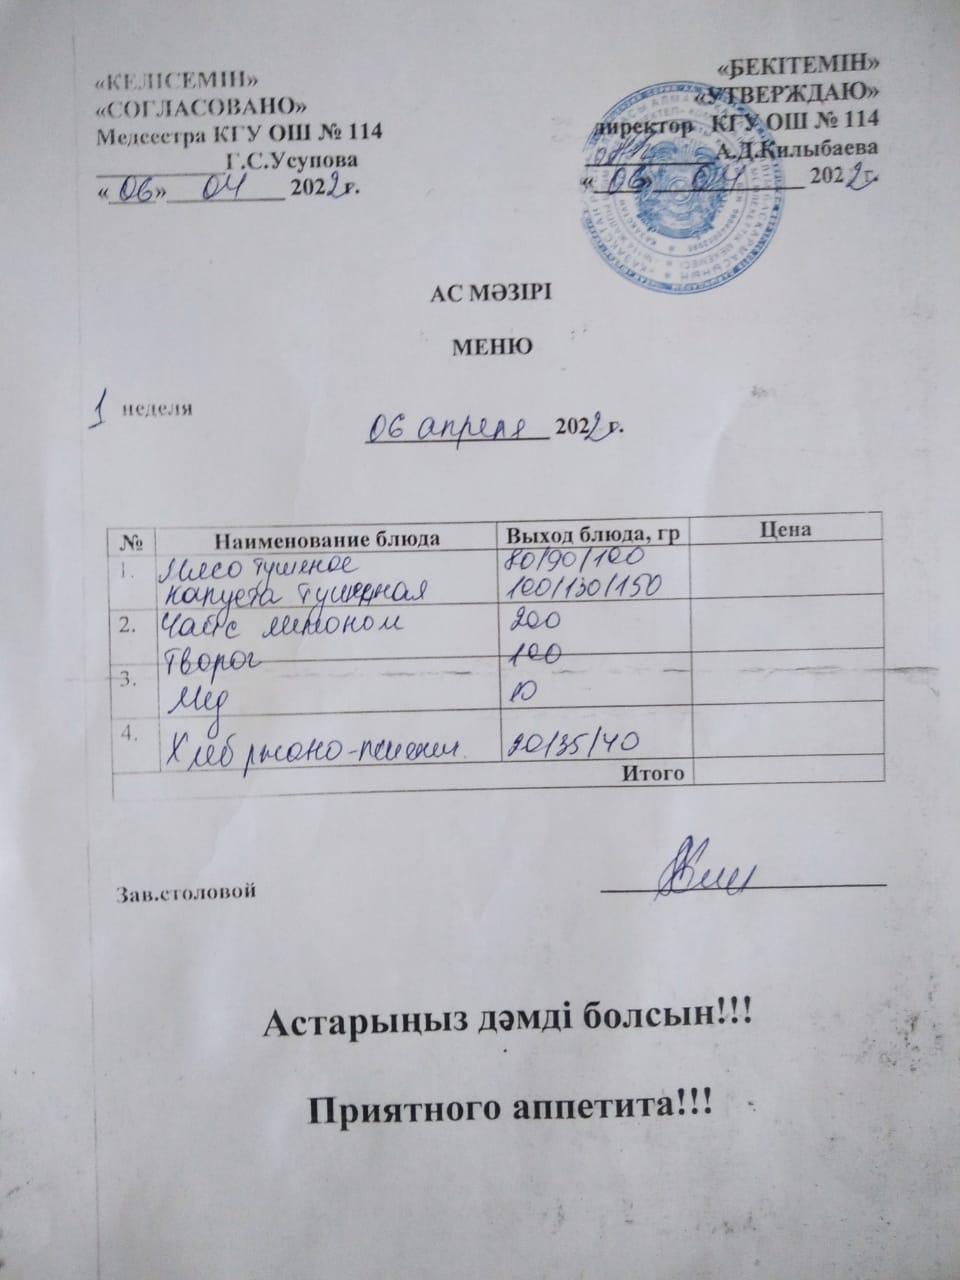 «КЕЛІСЕМІН»
«СОГЛАСОВАНО»
Медсестра КГУ ОШ № 114
Г.С.Усупова
«06» 04 2022г.
«БЕКІТЕМІН»
«УТВЕРЖДАЮ»
директор КГУ ОШ № 114
А.Д.Килыбаева
«06» 04 2022г.
АС МӘЗІРІ
МЕНЮ
1 неделя
06 апреля 2022г.
№ Наименование блюда Выход блюда, гр Цена
1. Мясо тушеное 80/90/100
капуста тушенная 100/130/150
2. Чай с лимоном 200
Творог 100
3. Мёд 10
4. Хлеб ржано-пшен. 20/35/40
Итого
Зав.столовой
Астарыңыз дәмді болсын!!!
Приятного аппетита!!!